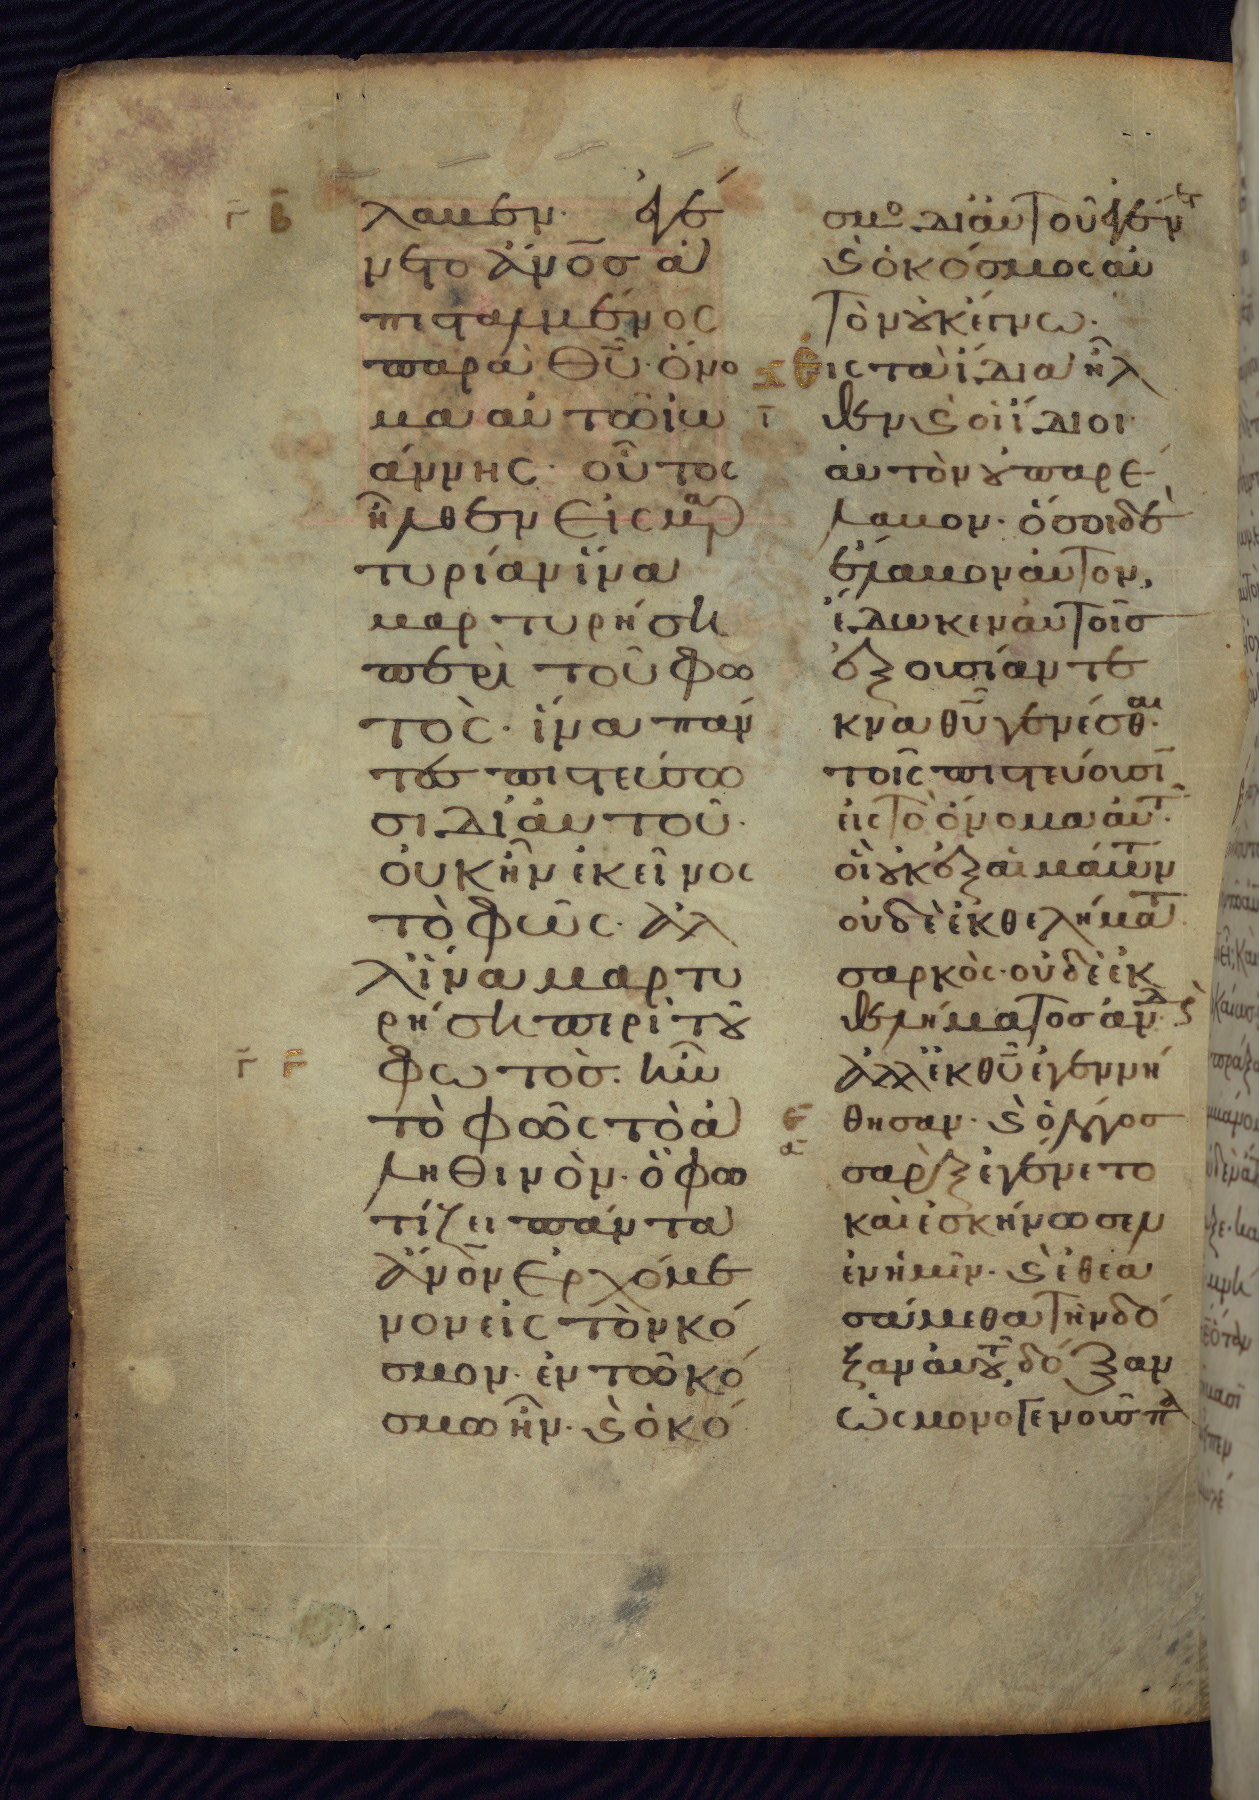 λαβεν· ἐγέ
νετο ἄνο̅σ ἀ
πεσταλμένος
παρὰ θυ̅· ὄνο
μα αὐτῶ ἰω
άννης· οὗτος
ἦλθεν εἰς μαρ
τυρίαν ἵνα
μαρτυρήση
περὶ τοῦ φω
τὸς· ἵνα πάν
τεσ πιστεύσω
σι δι αὐτοῦ·
οὐκ ἦν ἐκεῖνος
τὸ φῶς· ἀλ
λ ἵνα μαρτυ
ρήση περὶ τοῦ
φωτὸσ· ἦν
τὸ φῶς τὸ ἀ
ληθινὸν· ὃ φω
τίζει πάντα
ἄνο̅ν ἐρχόμε
νον εἰς τὸν κό
σμον· ἐν τῶ κό
σμω ἦν· ϗ ὁ κό
σμο δι αὐτοῦ ἐγένετ
ϗ ὁ κόσμος αὐ
τὸν οὐκ έγνω·
Εις τὰ ἴδια ἦλ
θεν ϗ οἱ ἴδιοι
αὐτὸν οὐ παρέ
λαβον· ὅσοι δὲ
έλαβον αὐτον,
έδωκεν αὐτοῖσ
ἐξουσίαν τέ
κνα θυ̅ γενέσθαι·
τοῖς πιστεύουσῖ
εἰς τὸ ὄνομα αὐτ·
οἳ οὐκ ἐξ αἱμάτων
οὐδὲ ἐκ θελήματ
σαρκὸς· οὐδὲ ἐκ
θελήματοσ ἀνδ
ἀλλ ἐκ θυ̅ ἐγεννή
θησαν· ϗ ὁ λόγοσ
σαρξ ἐγένετο
καὶ ἐσκήνωσεν
ἐν ἡμῖν· ϗ ἐθεα
σάμεθα τὴν δό
ξαν αὐτοῦ, δόξαν
ὡς μονογενοῦσ π